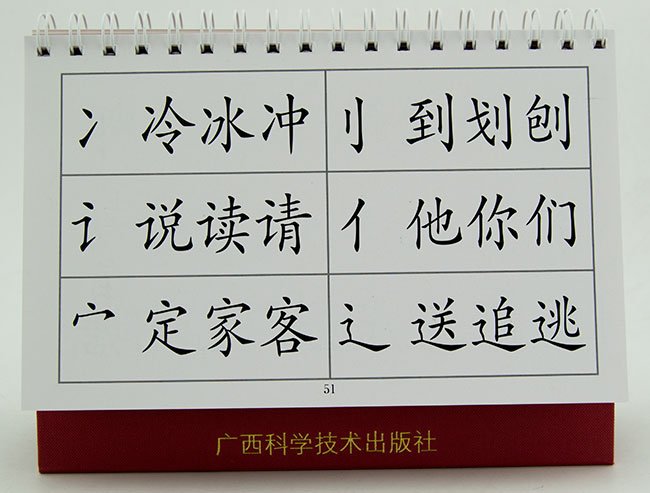 冫 冷冰冲 刂 到划刨
讠 说读请 亻 他你们
宀 定家客 辶 送追逃
51
广西科学技术出版社